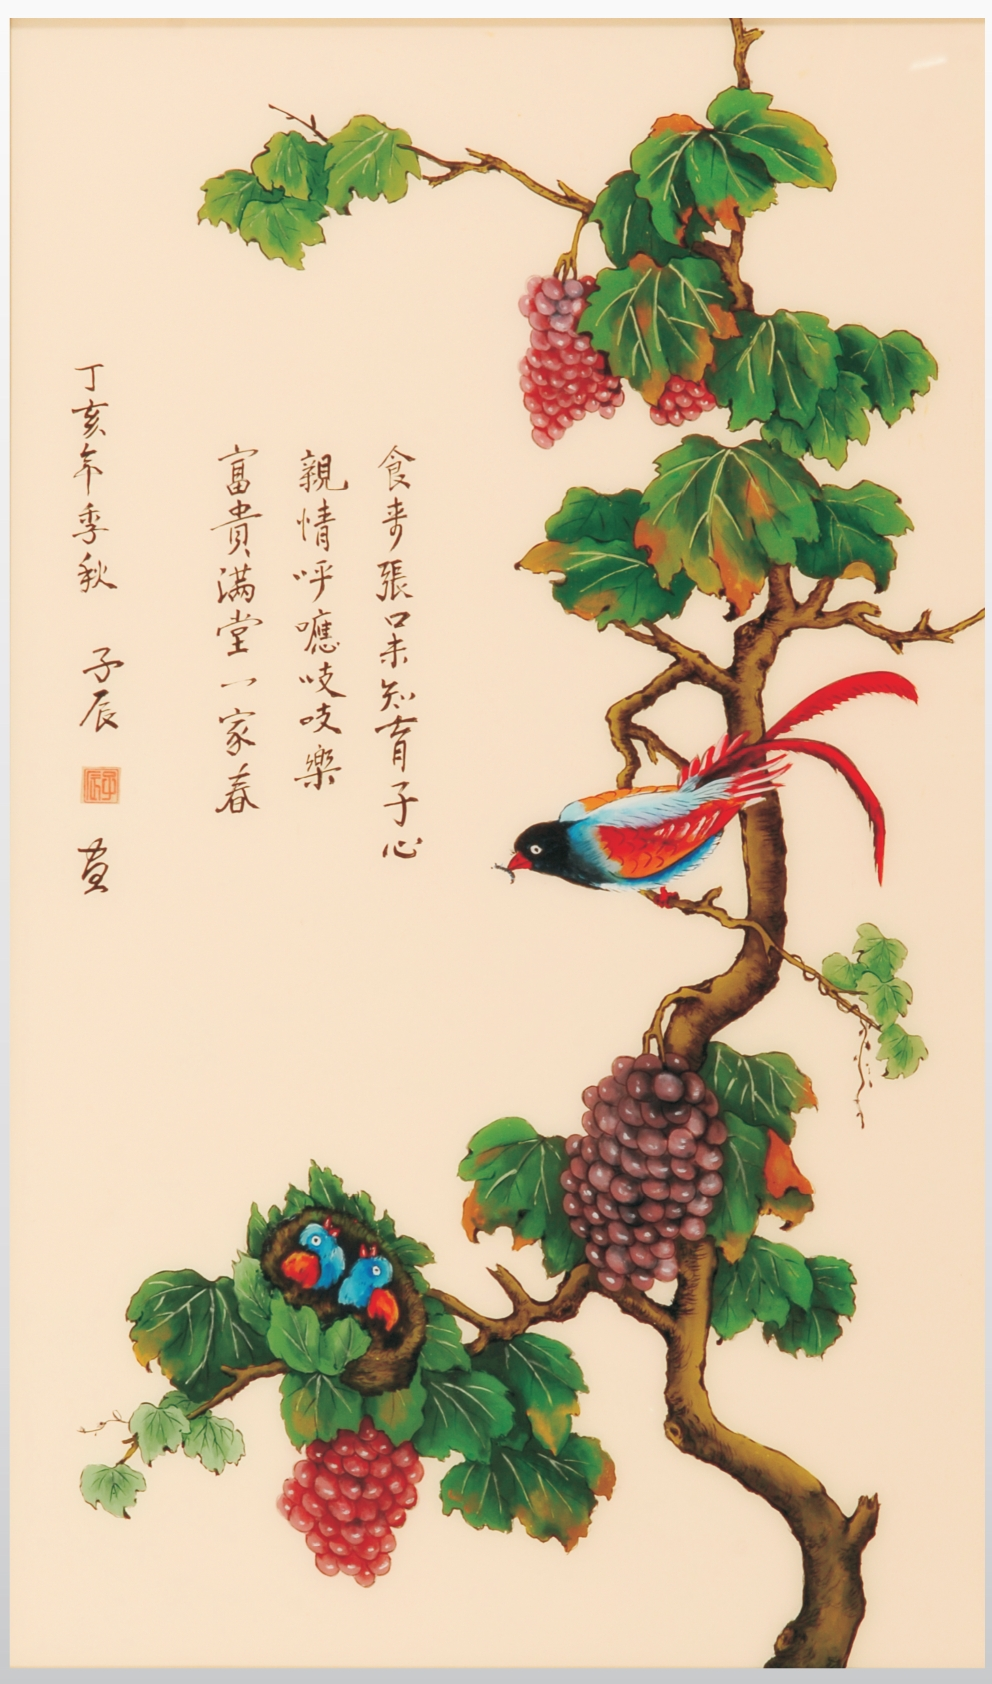 食來張口未知育子心
親情呼應吱吱樂
富貴滿堂一家春
丁亥年季秋 子辰 畫
子辰